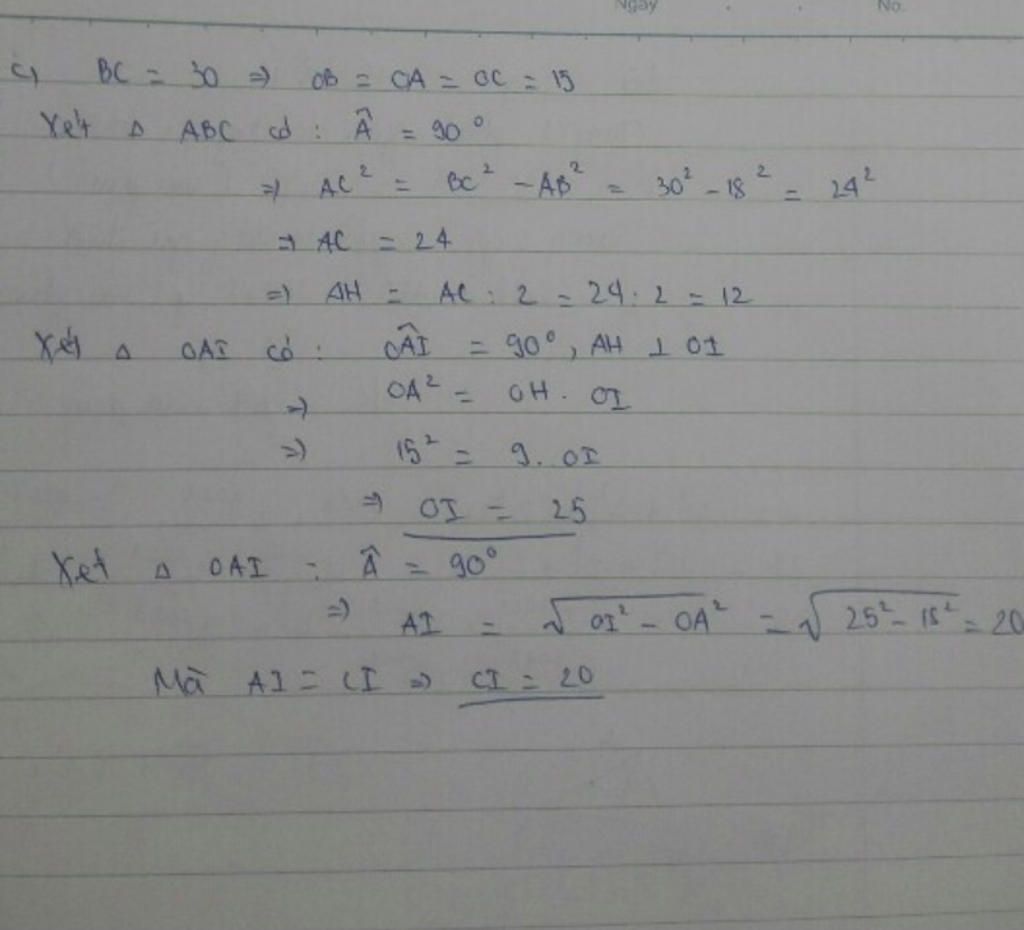 Ngày No.
c) BC = 30 => OB = OA = OC = 15
Xét Δ ABC có : Â = 90°
=> AC² = BC² - AB² = 30² - 18² = 24²
=> AC = 24
=> AH = AC : 2 = 24 : 2 = 12
Xét Δ OAI có : OÂI = 90°, AH ⊥ OI
=> OA² = OH . OI
=> 15² = 9. OI
=> OI = 25
Xét Δ OAI : Â = 90°
=> AI = √(OI² - OA²) = √(25² - 15²) = 20
Mà AI = CI => CI = 20